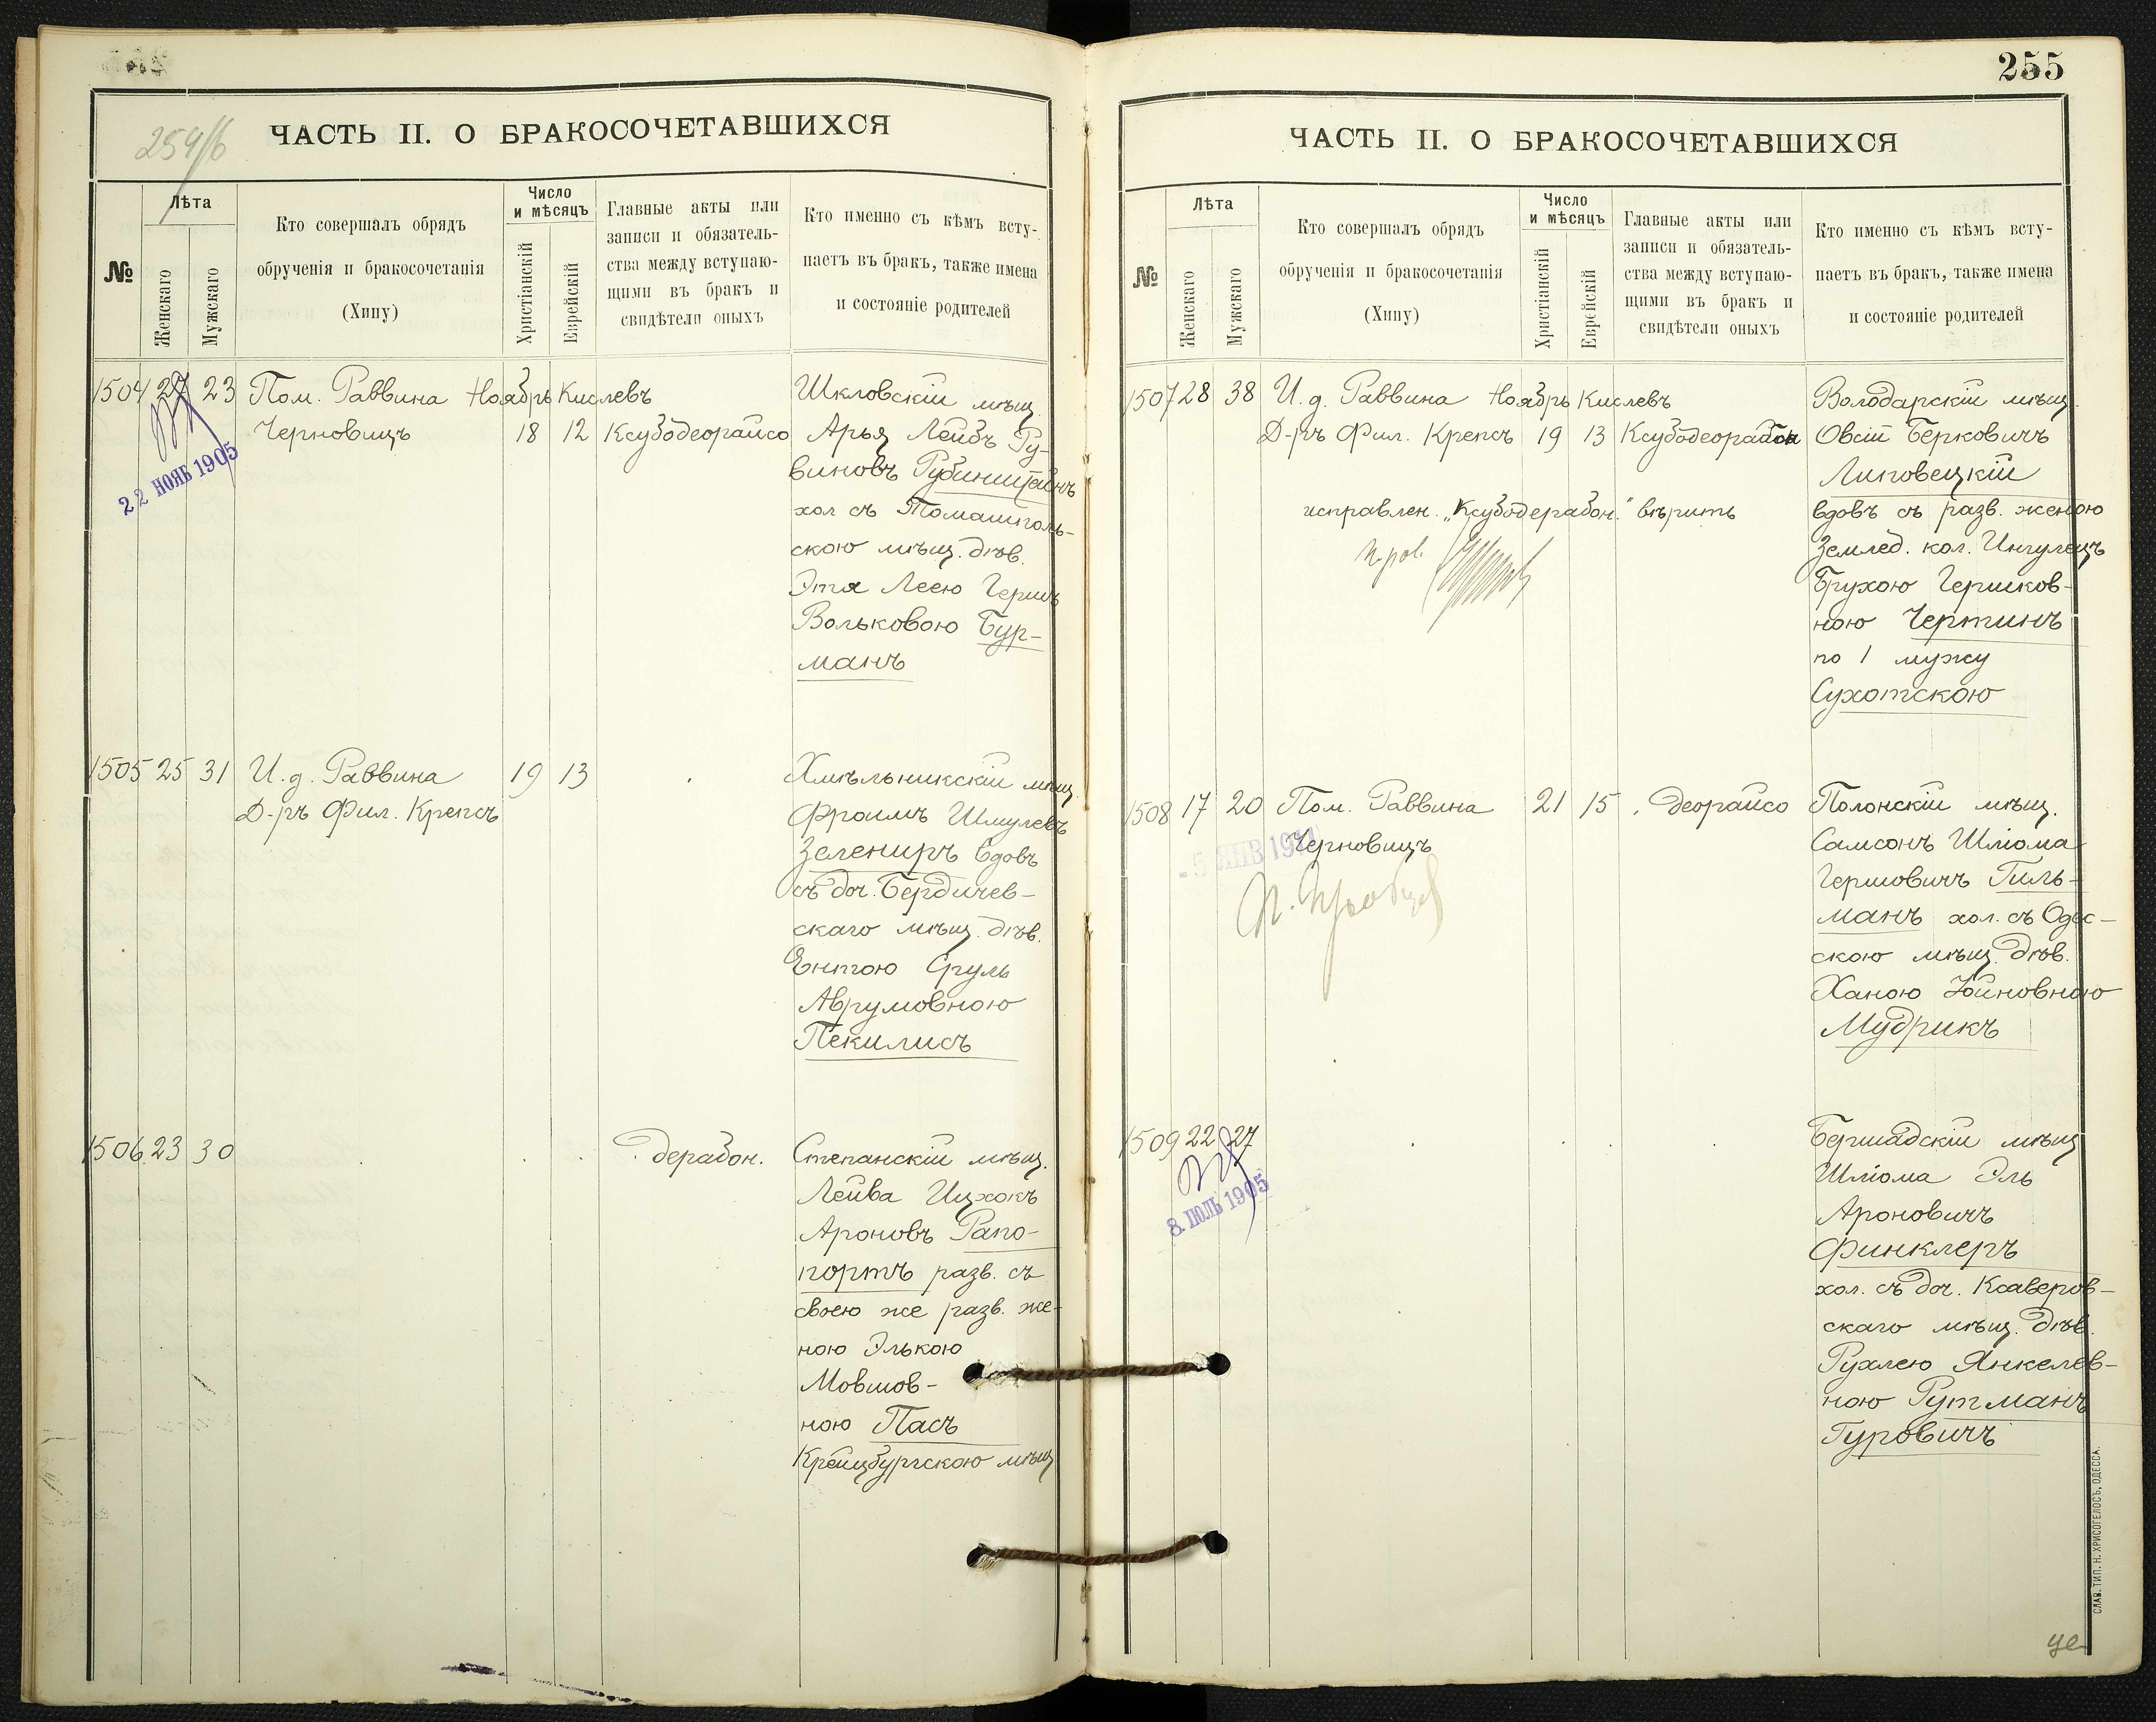 254/б
ЧАСТЬ II. О БРАКОСОЧЕТАВШИХСЯ
№
Лѣта
Женскаго
Мужскаго
Кто совершалъ обрядъ
обрученія и бракосочетанія
(Хипу)
Число
и мѣсяцъ
Христіанскій
Еврейскій
Главные акты или
записи и обязатель-
ства между вступаю-
щими въ бракъ и
свидѣтели оныхъ
Кто именно съ кѣмъ всту-
паетъ въ бракъ, также имена
и состояніе родителей
1504 27 23 Пом. Раввина Ноябрь Кислевъ Шкловскій мѣщ.
Черновицъ 18 12 Ксубодеорайсо Арья Лейбъ Ру-
виновъ Рубинштейнъ
хол съ Томашполь-
скою мѣщ. дѣв.
Этя Леею Герш
Вольковою Бур-
манъ
22 НОЯБ 1905
1505 25 31 И. д. Раввина 19 13 Хмѣльникскій мѣщ.
Д-ръ Фил. Крепсъ Фроимъ Шмулевъ
Зелениръ вдовъ
съ доч. Бердичев-
скаго мѣщ. дѣв.
Ентою Сруль
Аврумовною
Пекилисъ
1506 23 30 дерабон. Степанскій мѣщ.
Лейва Ицхокъ
Ароновъ Рапо-
портъ разв. съ
своею же разв. же-
ною Элькою
Мовшов-
ною Пасъ
Крейцбургскою мѣщ
255
ЧАСТЬ II. О БРАКОСОЧЕТАВШИХСЯ
№
Лѣта
Женскаго
Мужскаго
Кто совершалъ обрядъ
обрученія и бракосочетанія
(Хипу)
Число
и мѣсяцъ
Христіанскій
Еврейскій
Главные акты или
записи и обязатель-
ства между вступаю-
щими въ бракъ и
свидѣтели оныхъ
Кто именно съ кѣмъ всту-
паетъ въ бракъ, также имена
и состояніе родителей
1507 28 38 И. д. Раввина Ноябрь Кислевъ Володарскій мѣщ.
Д-ръ Фил. Крепсъ 19 13 Ксубодеорабон Овсій Берковичъ
Липовецкій
исправлен. „Ксубодерабон." вѣрить вдовъ съ разв. женою
Землед. кол. Ингулецъ
Брухою Гершков-
ною Чертинъ
по 1 мужу
Сухотскою
1508 17 20 Пом. Раввина 21 15 деорайсо Полонскій мѣщ.
Черновицъ Самсонъ Шліома
Гершовичъ Гиль-
манъ хол. съ Одес-
скою мѣщ. дѣв.
Ханою Хоиновною
Мудрикъ
1509 22 27 Бершадскій мѣщ
Шліома Эль
Ароновичъ
Финклеръ
хол. съ доч. Ксаверов-
скаго мѣщ. дѣв.
Рухлею Янкелев-
ною Гутманъ
Гуровичъ
8. ІЮЛЬ 1905
СЛАВ. ТИП. Н. ХРИСОГЕЛОСЪ, ОДЕССА.